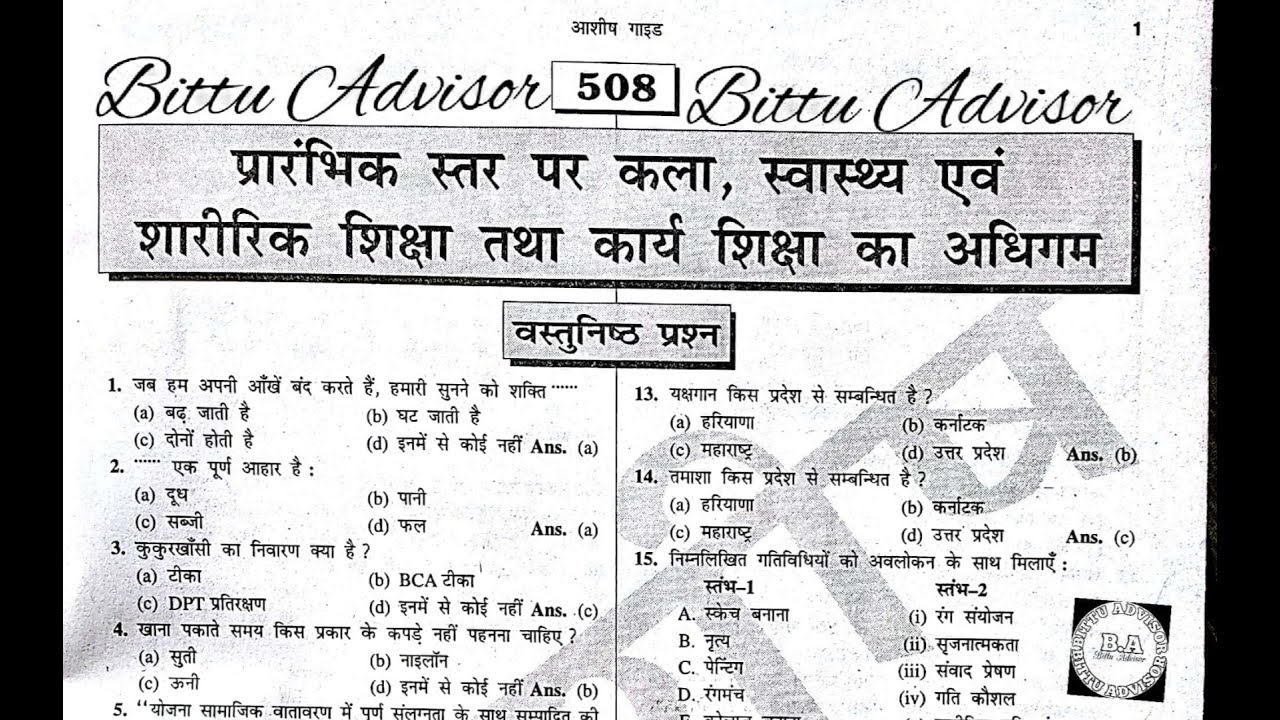 आशीष गाइड
1
Bittu Advisor 508 Bittu Advisor
प्रारंभिक स्तर पर कला, स्वास्थ्य एवं
शारीरिक शिक्षा तथा कार्य शिक्षा का अधिगम
वस्तुनिष्ठ प्रश्न
1. जब हम अपनी आँखें बंद करते हैं, हमारी सुनने को शक्ति ······
(a) बढ़ जाती है (b) घट जाती है
(c) दोनों होती है (d) इनमें से कोई नहीं Ans. (a)
2. ······ एक पूर्ण आहार है :
(a) दूध (b) पानी
(c) सब्जी (d) फल Ans. (a)
3. कुकुरखाँसी का निवारण क्या है ?
(a) टीका (b) BCA टीका
(c) DPT प्रतिरक्षण (d) इनमें से कोई नहीं Ans. (c)
4. खाना पकाते समय किस प्रकार के कपड़े नहीं पहनना चाहिए ?
(a) सुती (b) नाइलॉन
(c) ऊनी (d) इनमें से कोई नहीं Ans. (b)
5. “योजना सामाजिक वातावरण में पूर्ण संलग्नता के साथ सम्पादित की
13. यक्षगान किस प्रदेश से सम्बन्धित है ?
(a) हरियाणा (b) कर्नाटक
(c) महाराष्ट्र (d) उत्तर प्रदेश Ans. (b)
14. तमाशा किस प्रदेश से सम्बन्धित है ?
(a) हरियाणा (b) कर्नाटक
(c) महाराष्ट्र (d) उत्तर प्रदेश Ans. (c)
15. निम्नलिखित गतिविधियों को अवलोकन के साथ मिलाएँ :
स्तंभ–1 स्तंभ–2
A. स्केच बनाना (i) रंग संयोजन
B. नृत्य (ii) सृजनात्मकता
C. पेन्टिंग (iii) संवाद प्रेषण
D. रंगमंच (iv) गति कौशल
BITTU ADVISOR
B.A
Bittu Advisor
BITTU ADVISOR